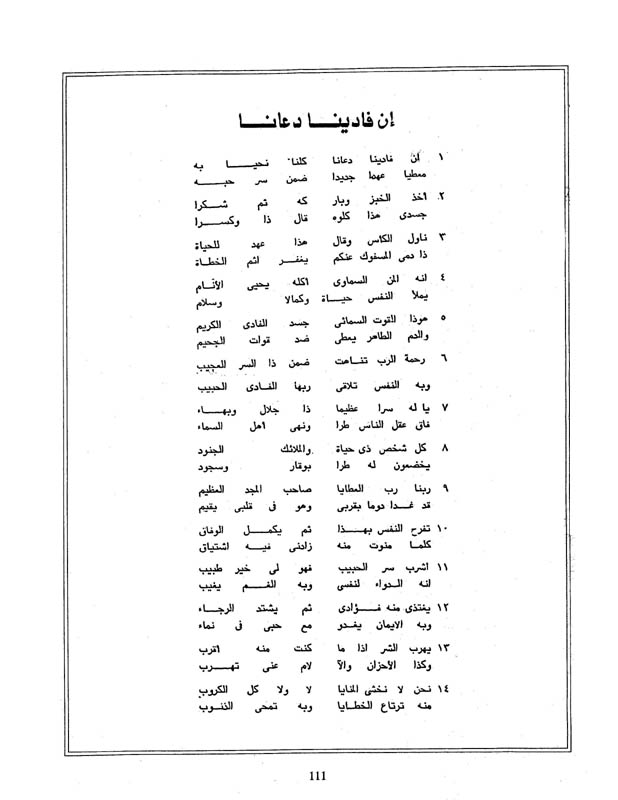 إن فادينا دعانا
١ أن فادينا دعانا كلنا نحيا به
معطيا عهدا جديدا ضمن سر حبه
٢ أخذ الخبز وبار كه ثم شكرا
جسدى هذا كلوه قال ذا وكسرا
٣ ناول الكأس وقال هذا عهد للحياة
ذا دمى المسفوك عنكم يغفر اثم الخطاة
٤ انه المن السماوى اكله يحيى الأنام
يملأ النفس حياة وكمالا وسلام
٥ هوذا القوت السمائى جسد الفادى الكريم
والدم الطاهر يعطى ضد قوات الجحيم
٦ رحمة الرب تناهت ضمن ذا السر العجيب
وبه النفس تلاقى ربها الفادى الحبيب
٧ يا له سرا عظيما ذا جلال وبهاء
فاق عقل الناس طرا ونهى اهل السماء
٨ كل شخص ذى حياة والملائك الجنود
يخضعون له طرا بوقار وسجود
٩ ربنا رب العطايا صاحب المجد العظيم
قد غدا دوما بقربى وهو فى قلبى يقيم
١٠ تفرح النفس بهذا ثم يكمل الوفاق
كلما منوت منه زادنى فيه اشتياق
١١ اشرب سر الحبيب فهو لى خير طبيب
انه الدواء لنفسى وبه الغم يغيب
١٢ يغتذى منه فؤادى ثم يشتد الرجاء
وبه الايمان يغدو مع حبى فى نماء
١٣ يهرب الشر اذا ما كنت منه اقرب
وكذا الأحزان والآ لام عنى تهرب
١٤ نحن لا نخشى المنايا لا ولا كل الكروب
منه ترتاع الخطايا وبه تمحى الذنوب
111